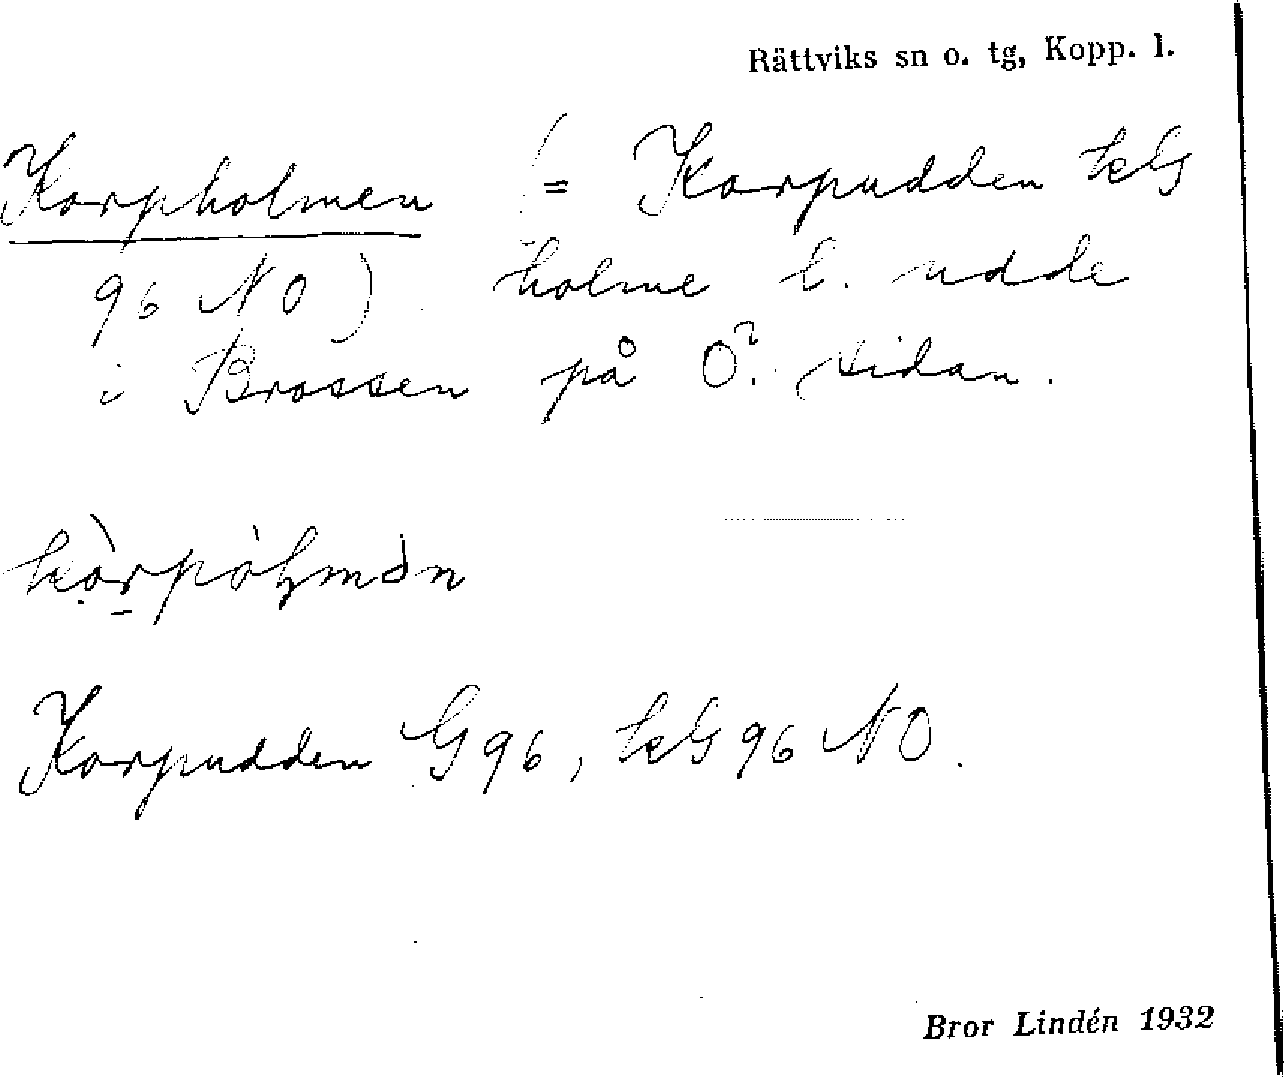 Rättviks sn o. tg, Kopp. l.
Korpholmen (= Korpudden kG
96 NO) holme l. udde
i Brossen på Ö?. sidan.
Korpudden G96, kG96 NO.
Bror Lindén 1932